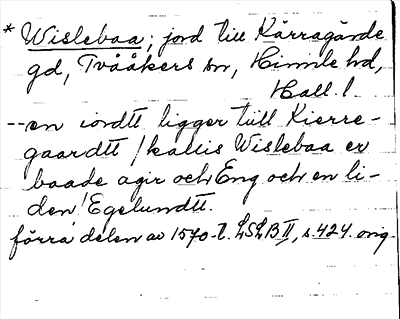 * Wislebaa; jord till Kärragärde
gd, Tvååkers sn, Himle hd,
Hall. l.
-- en iordtt ligger tiill Kierre-
gaardtt / kallis Wislebaa er
baade agir och Eng och en li-
den Egelundtt.
förra delen av 1570-t. LSLB II, s. 424. orig.